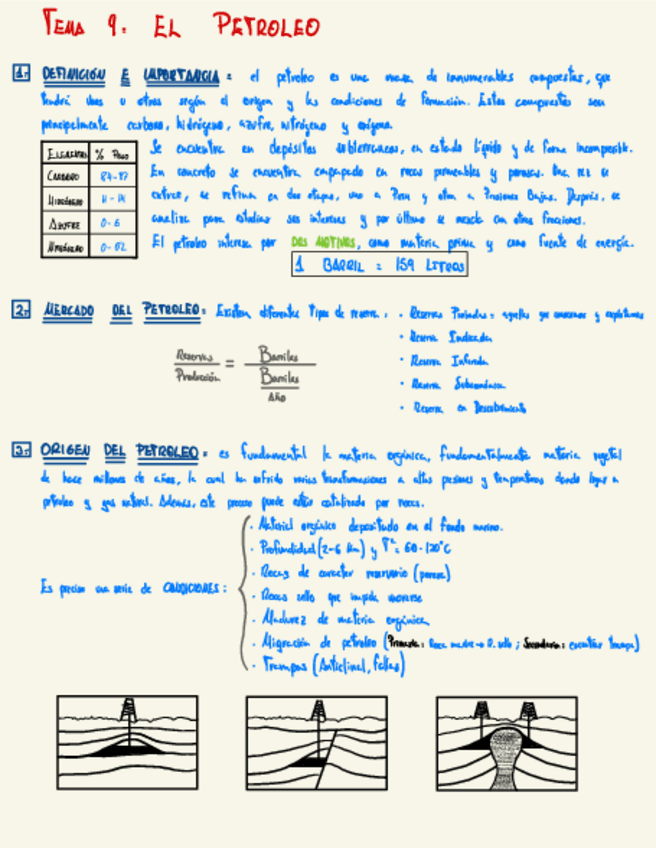 TEMA 9: EL PETROLEO
1. DEFINICIÓN E IMPORTANCIA: el petroleo es una mezcla de innumerables compuestos, que
tendrá unos u otros según el origen y las condiciones de formación. Estos compuestos son
principalmente carbono, hidrógeno, azufre, nitrógeno y oxígeno.
Se encuentra en depósitos subterraneos, en estado líquido y de forma incompresible.
ELEMENTOS % PESO
CARBONO 84-87
HIDRÓGENO 11-14
AZUFRE 0-6
NITRÓGENO 0-0'2
En concreto se encuentra empapado en rocas permeables y porosas. Una vez se
extrae, se refina en dos etapas, una a Patm y otra a Presiones Bajas. Después, se
analiza para estudiar sus intereses y por último se mezcla con otras fracciones.
El petroleo interesa por DOS MOTIVOS, como materia prima y como fuente de energía.
1 BARRIL = 159 LITROS
2. MERCADO DEL PETROLEO: Existen diferentes tipos de reserva: · Reservas Probadas = aquellas que conocemos y explotamos
· Reserva Indicada
· Reserva Inferida
· Reserva Subeconómica
· Reserva en Descubrimiento
Reservas / Producción = Barriles / Barriles / Año
3. ORIGEN DEL PETROLEO: es fundamental la materia orgánica, fundamentalmente materia vegetal
de hace millones de años, la cual ha sufrido varias transformaciones a altas presiones y temperaturas dando lugar a
petroleo y gas natural. Además, este proceso puede estar catalizado por rocas.
Es preciso una serie de CONDICIONES:
· Material orgánico depositado en el fondo marino.
· Profundidad (2-6 km) y Tª: 60-120°C
· Rocas de caracter reservorio (porosa)
· Rocas sello que impida moverse
· Madurez de materia orgánica
· Migración de petroleo (Primaria: Roca madre → R. sello ; Secundaria: encontrar trampa)
· Trampas (Anticlinal, fallas)